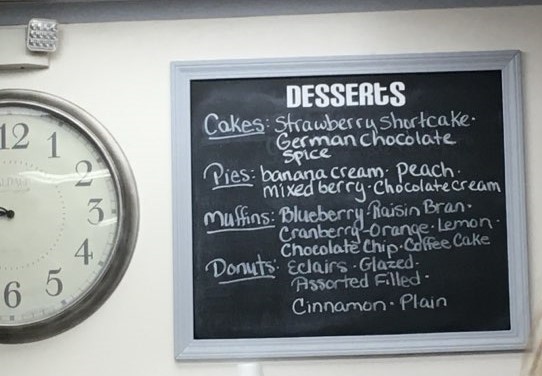 DESSERts
Cakes: Strawberry Shortcake·
German chocolate
spice
Pies: banana cream· Peach·
mixed berry· Chocolate cream
Muffins: Blueberry· Raisin Bran·
Cranberry-Orange· Lemon·
Chocolate Chip· Coffee Cake
Donuts: Eclairs· Glazed·
Assorted Filled·
Cinnamon· Plain
12
1
2
3
4
5
6